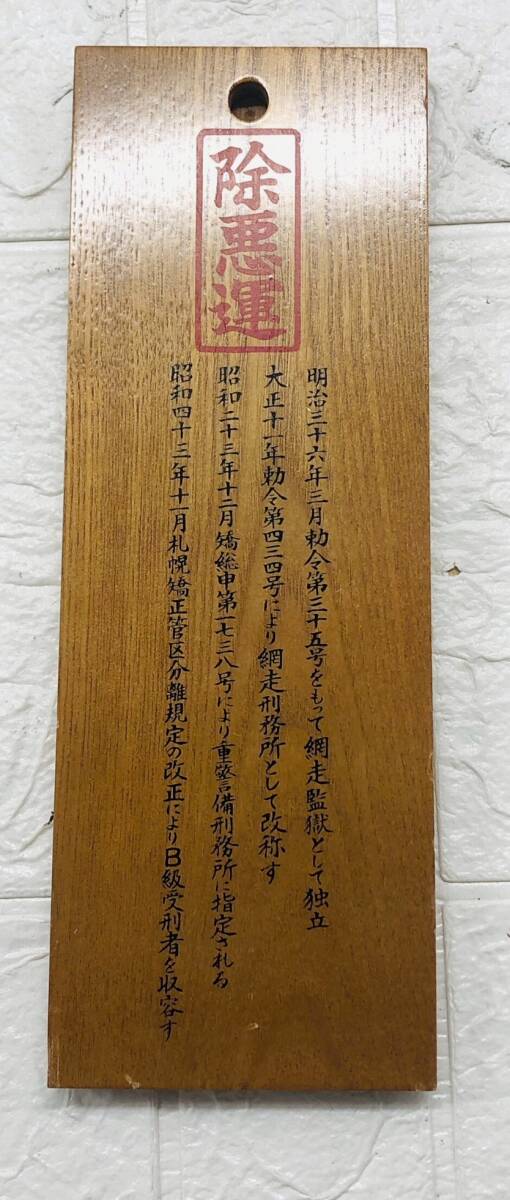 除悪運
明治三十六年三月勅令第三十五号をもって網走監獄として独立
大正十一年勅令第四三四号により網走刑務所として改称す
昭和二十三年十二月矯総甲第一七三八号により重警備刑務所に指定される
昭和四十三年十一月札幌矯正管区分離規定の改正によりB級受刑者を収容す